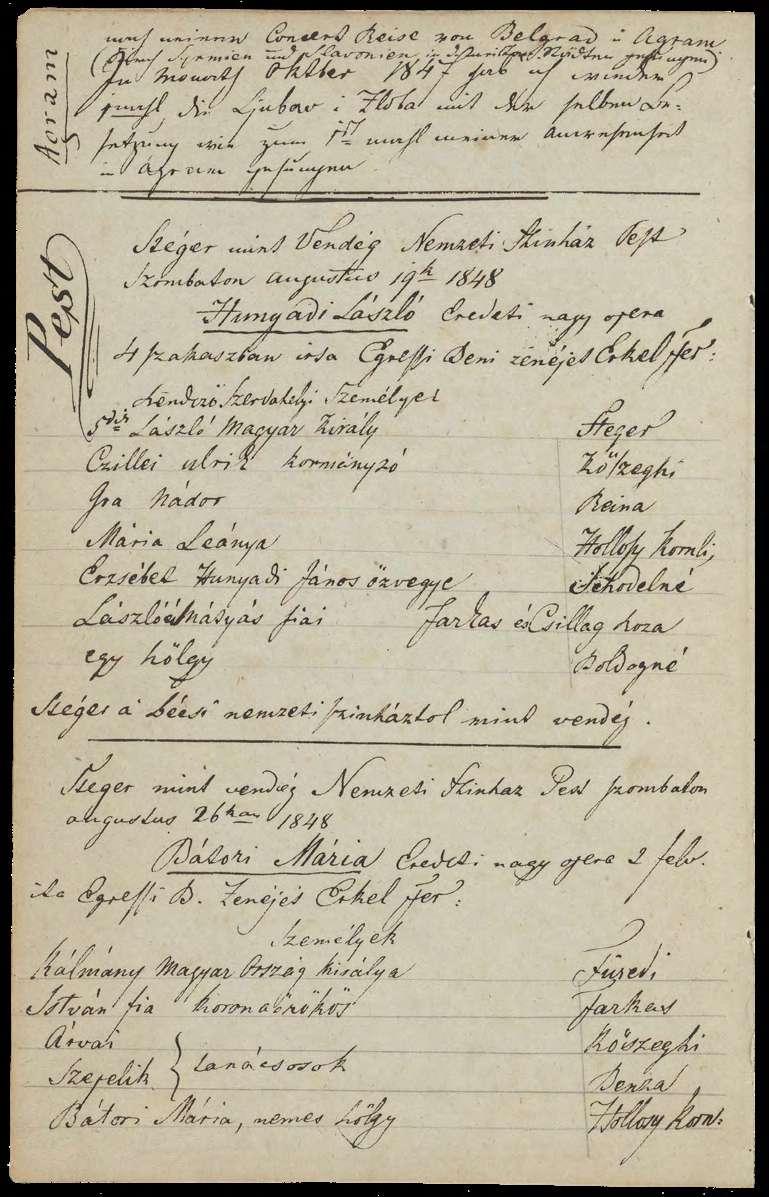 Agram
nach meiner Concert Reise von Belgrad u Agram
(durch Syrmien und Slavonien in Städten gesungen)
Im Monath Oktber 1847 gab ich wieder
die Ljubav i Zloba mit der selben Be-
setzung wie zum 1st mahl meiner Anwesenheit
in Agram gesungen
Pest
Stéger mint Vendég Nemzeti Szinház Pest
Szombaton augustus 19k 1848
Hunyadi László Eredeti nagy opera
4 szakaszban irta Egressi Beni zenéjét Erkel Fer:
Személyei
5dik László Magyar Király Steger
Czillei Ulrik kormányzó Kőszeghi
Gra Nádor Reina
Mária Leánya Hollosy Kornli,
Erzsébet Hunyadi János özvegye Schodelné
László és Mátyás fiai Farkas és Csillag Roza
egy hölgy Boldogné
Stéger a bécsi nemzeti szinháztol mint vendég.
Steger mint vendég Nemzeti Szinhaz Pest szombaton
augustus 26kan 1848
Bátori Mária Eredeti nagy opera 2 felv.
irta Egressi B. Zenéjét Erkel Fer:
Személyek
Kálmány Magyar Ország királya Füredi
István fia koronaörökös Farkas
Árvai Kőszeghi
Szepelik } tanácsosok Benza
Bátori Mária, nemes hölgy Hollosy Korn: